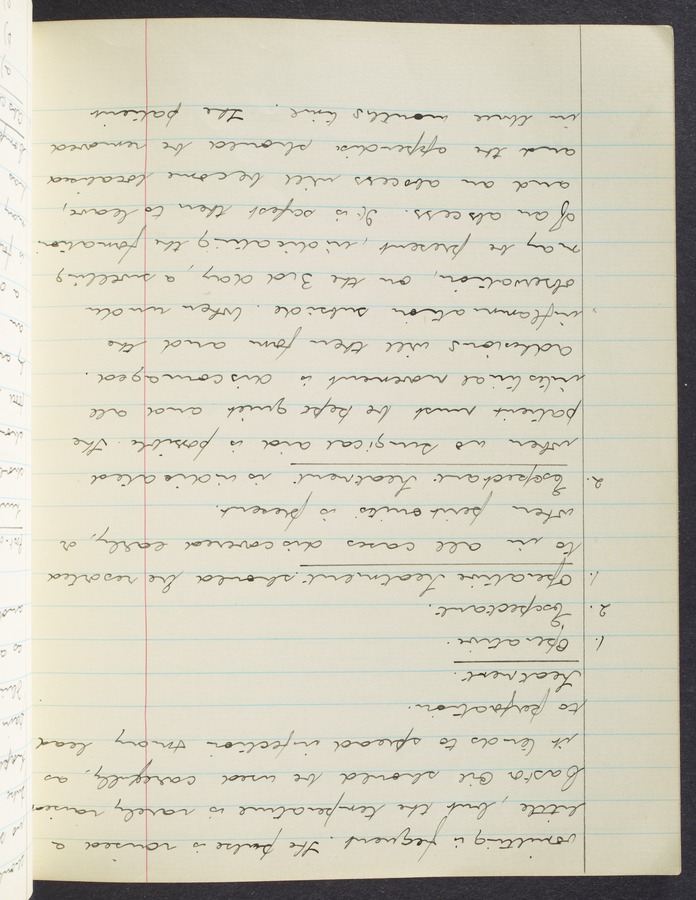 vomiting is frequent. The pulse is raised a
little, but the temperature is rarely raised
Castor Oil should be used carefully, as
it tends to spread infection & may lead
to perforation.
Treatment.
1. Operative.
2. Expectant.
1. Operative treatment should be resorted
to in all cases discovered early, or
when peritonitis is present.
2. Expectant treatment is indicated
when no surgical aid is possible. The
patient must be kept quiet and all
intestinal movement is discouraged.
Adhesions will then form and the
inflammation subside. When under
observation, on the 3rd day, a swelling
may be present, indicating the formation
of an abscess. It is safest then to leave,
and an abscess will become localised
and the appendix should be removed
in three months time. The patient